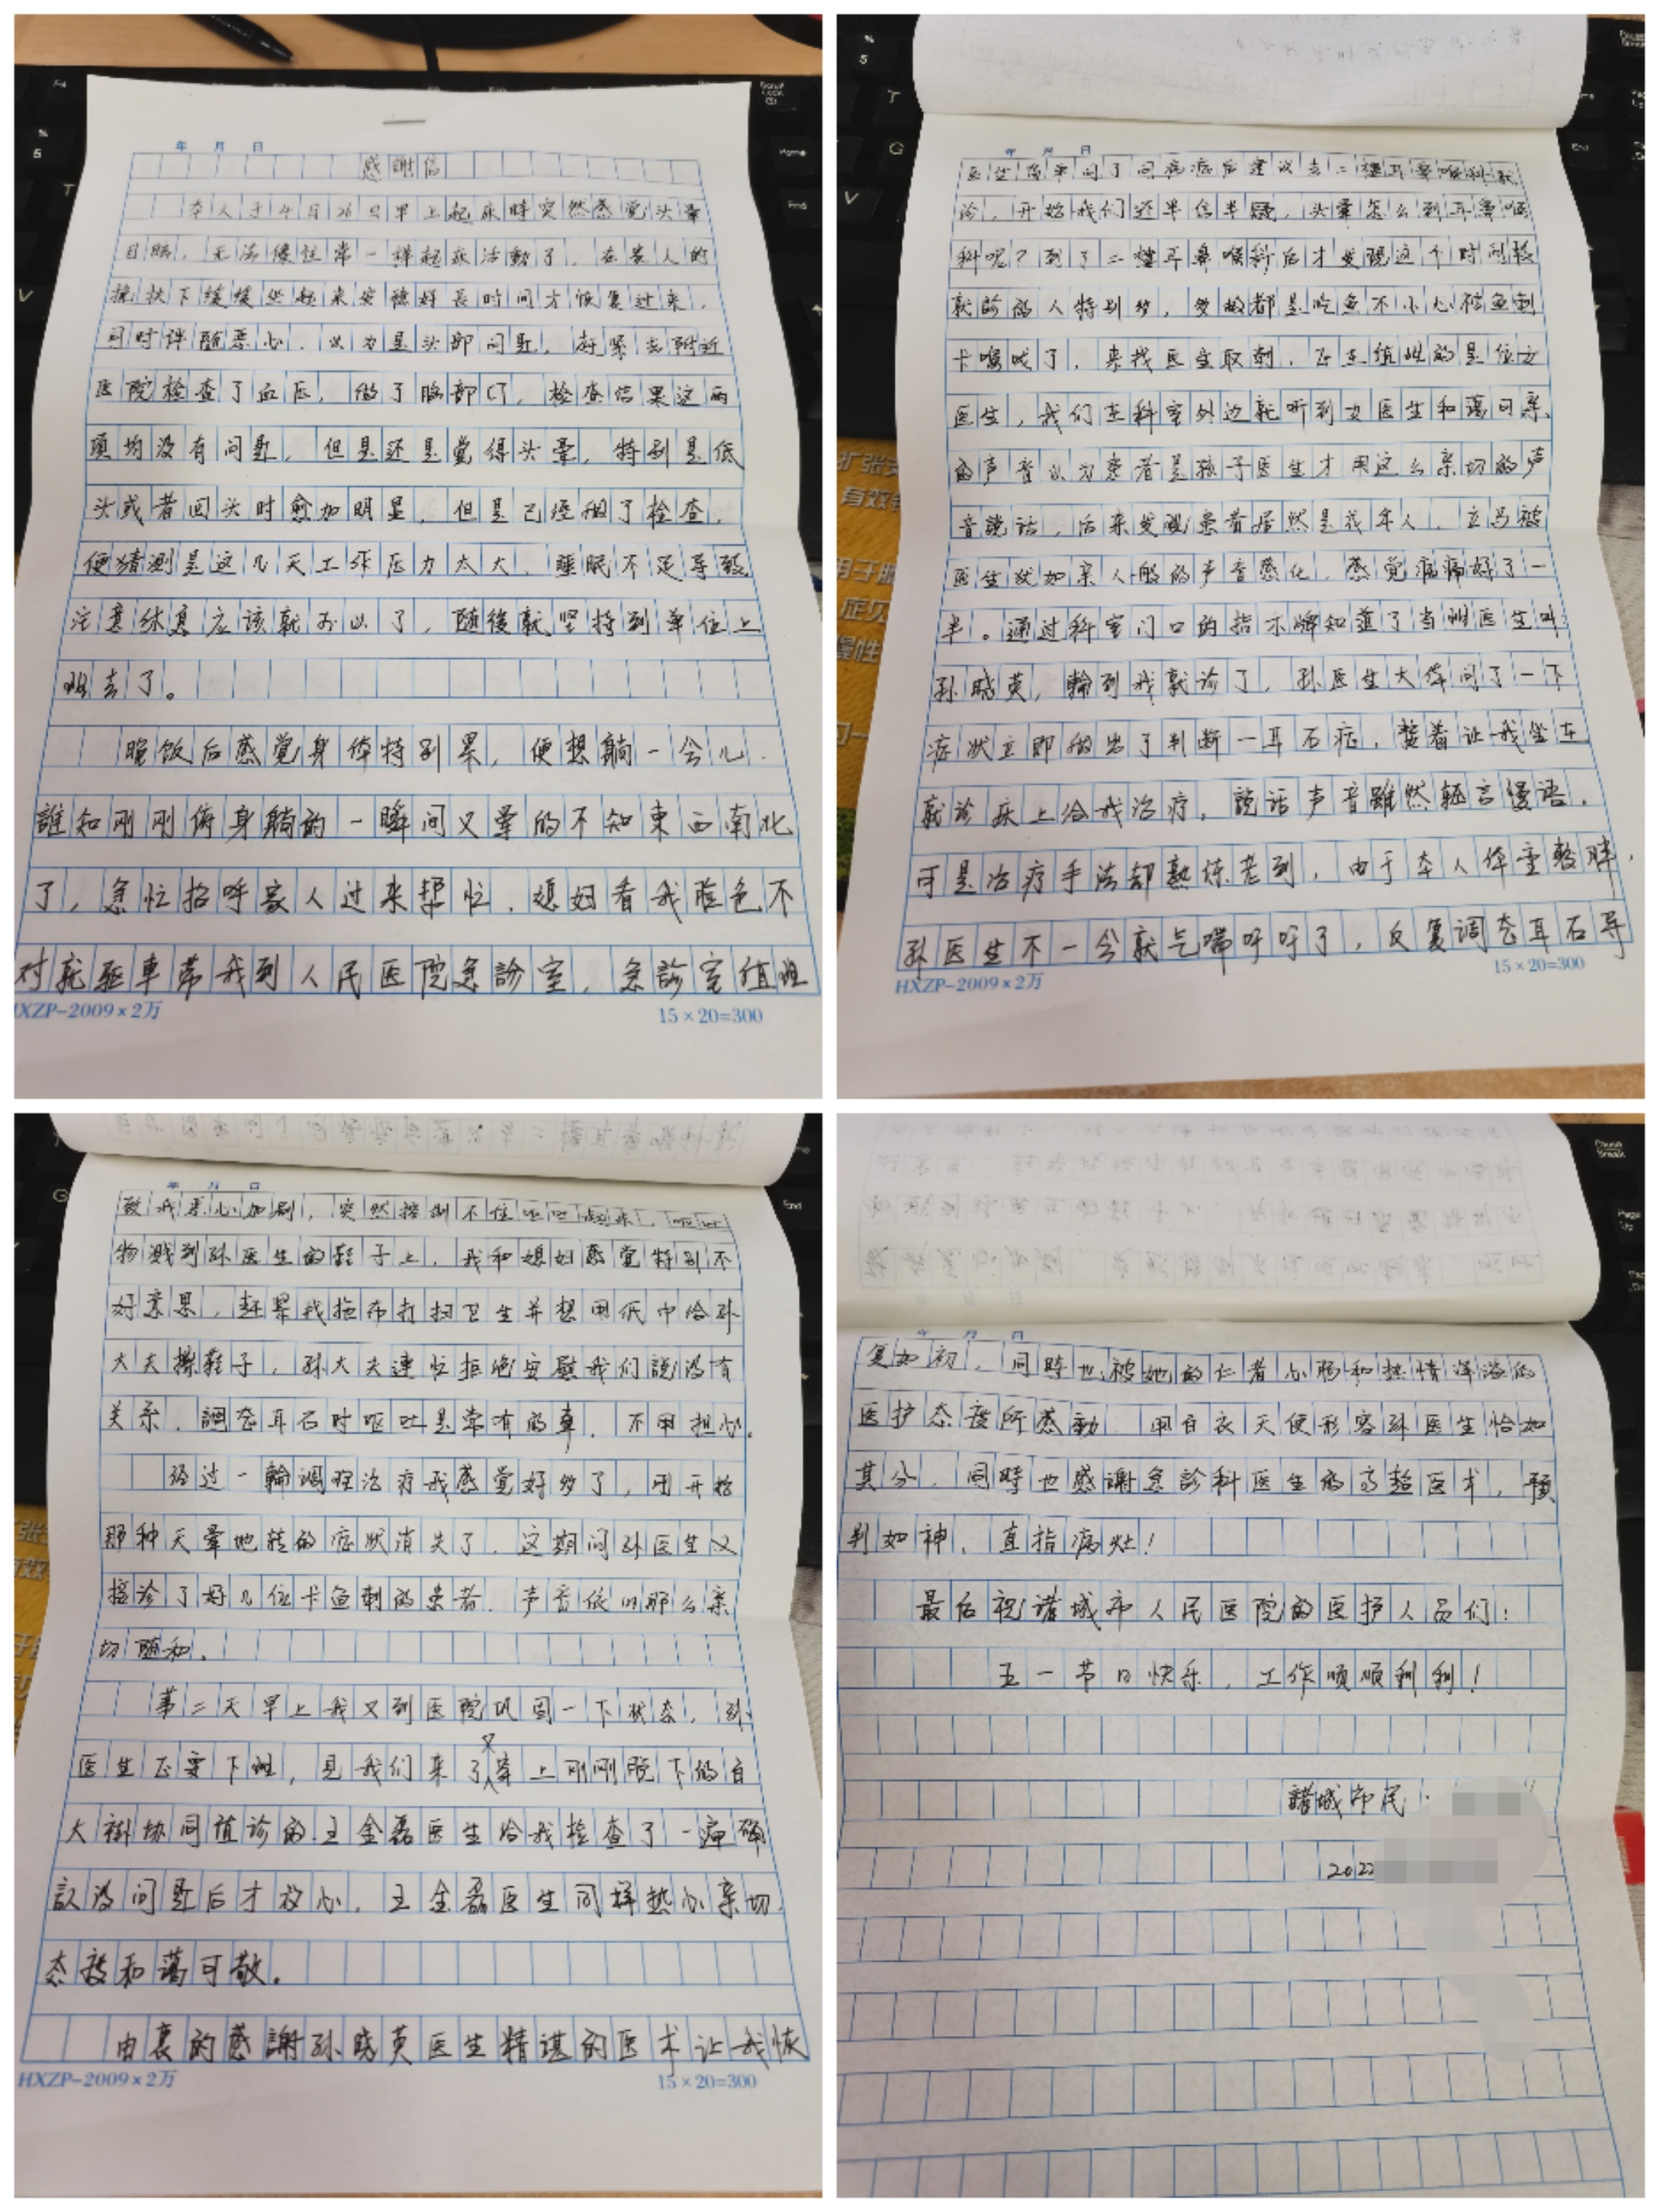 年 月 日
感謝信
本人于4月26日早上起床時突然感觉头晕
目眩，无法像往常一样起床活動了，在家人的
搀扶下缓缓坐起来安穩好長时间才恢复过来，
同时伴随恶心，以为是头部问题，赶紧去附近
医院检查了血压，做了腦部CT，检查结果这两
項均没有问题，但是还是觉得头晕，特别是低
头或者回头时愈加明显，但是已经做了检查，
便猜测是这几天工作压力太大、睡眠不足导致
注意休息应该就可以了，随後就坚持到单位上
班去了。
晚饭后感觉身体特别累，便想躺一会儿．
誰知刚刚俯身躺的一瞬间又晕的不知東西南北
了，急忙招呼家人过来帮忙．媳妇看我脸色不
对就驱車带我到人民医院急診室，急診室值班
HXZP-2009×2万
15×20=300
年 月 日
医生简单问了问病症后建议去二楼耳鼻喉科就
诊，开始我们还半信半疑，头晕怎么到耳鼻喉
科呢？到了二楼耳鼻喉科后才发现这个时间段
就診的人特别多，多数都是吃鱼不小心被鱼刺
卡喉咙了，来找医生取刺．正在值班的是位女
医生，我们在科室外边就听到女医生和蔼可亲
的声音以为患者是孩子医生才用这么亲切的声
音説话，后来发现患者居然是成年人．立马被
医生犹如亲人般的声音感化，感觉病痛好了一
半。通过科室门口的指示牌知道了当班医生叫
孙晓英，輪到我就诊了，孙医生大体问了一下
症状立即做出了判断一耳石症，接着让我坐在
就诊床上给我治疗，説话声音雖然轻言慢语，
可是治疗手法却熟练老到，由于本人体重较胖，
孙医生不一会就气喘吁吁了，反复调态耳石导
HXZP-2009×2万
15×20=300
年 月 日
致我恶心加剧，突然控制不住呕吐起来，呕吐
物溅到孙医生的鞋子上．我和媳妇感觉特别不
好意思，赶紧找拖布打扫卫生并想用纸巾给孙
大夫擦鞋子，孙大夫連忙拒绝安慰我们説没有
关系，調态耳石时呕吐是常有的事，不用担心．
经过一輪调理治疗我感觉好多了，刚开始
那种天晕地转的症状消失了．这期间孙医生又
接诊了好几位卡鱼刺的患者．声音依旧那么亲
切随和．
第二天早上我又到医院巩固一下状态，孙
医生正要下班，見我们来了又穿上刚刚脱下的白
大褂协同值诊的王金磊医生给我检查了一遍確
認没问题后才放心．王金磊医生同样热心亲切
态度和蔼可敬．
由衷的感謝孙晓英医生精谌的医术让我恢
HXZP-2009×2万
15×20=300
年 月 日
复如初，同時也被她的仁者心肠和热情洋溢的
医护态度所感動．用白衣天使形容孙医生恰如
其分．同時也感謝急診科医生的高超医术，预
判如神、直指病灶！
最后祝诸城市人民医院的医护人员们：
五一节日快乐，工作顺顺利利！
諸城市民
2022